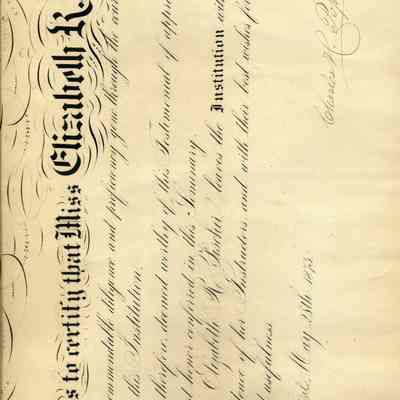 s to certify that Miss Elizabeth R.
mmendable diligence and proficiency, gone through the
this Institution.
therefore, deemed worthy of this Testimonial of
t honor conferred in this Seminary.
Elizabeth R. leaves the Institution with
dence of her Instructors and with their best wishes for
d usefulness.
May 13th 1873.
Charles H.